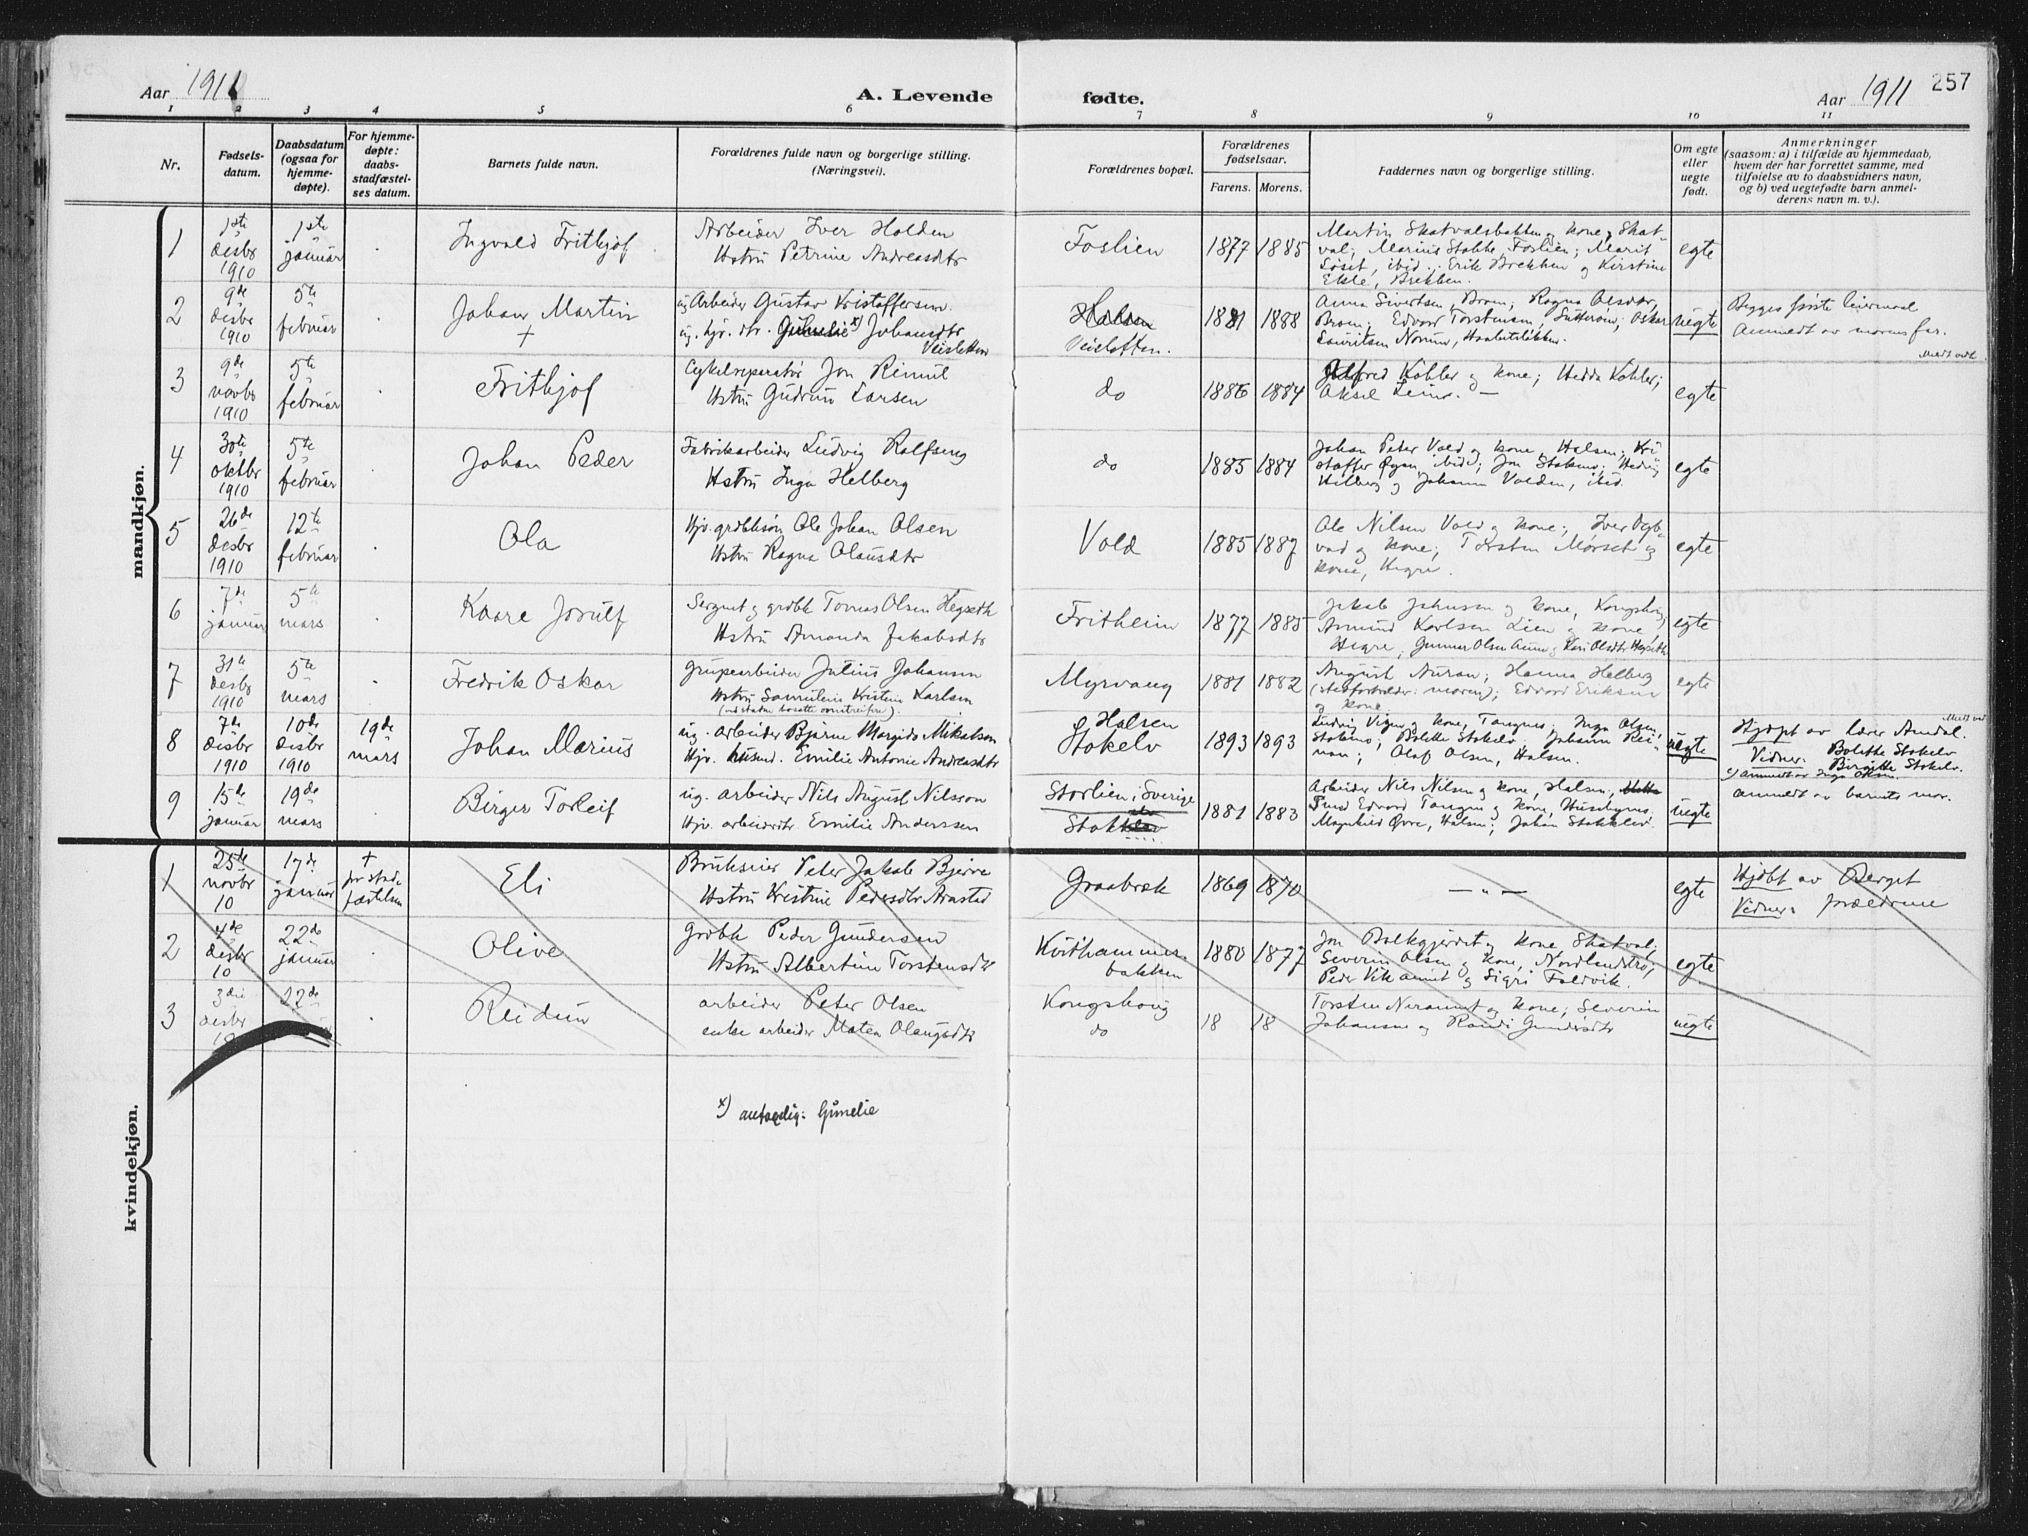 257
Aar 1911 A. Levende fødte. Aar 1911
1 2 3 4 5 6 7 8 9 10 11
Nr.
Fødsels-
datum.
Daabsdatum
(ogsaa for
hjemme-
døpte).
For hjemme-
døpte:
daabs-
stadfæstel-
ses datum.
Barnets fulde navn.
Forældrenes fulde navn og borgerlige stilling.
(Næringsvei).
Forældrenes bopæl.
Forældrenes
fødselsaar.
Farens. Morens.
Faddernes navn og borgerlige stilling.
Om egte
eller
uegte
født.
Anmerkninger
(saasom: a) i tilfælde av hjemmedaab,
hvem der har forrettet samme, med
tilføielse av to daabsvidners navn,
og b) ved uegtefødte barn anmel-
derens navn m. v.).
mandkjøn.
1
1ste
desbr
1910
1ste
januar
Ingvald Frithjof
Arbeider Iver Holden
Hstru Petrine Andreasdtr
Foslien
1877 1885
Martin Skatvalsbakken og kone, Skat-
val; Marius Stokke, Foslien; Marit
Løset, ibid.; Erik Brekken og Kirstine
Ekle, Brekken.
egte
2
9de
desbr
1910
5te
februar
Johan Martin
+
ug. Arbeider Gustav Kristoffersen
ug. Gjv. dtr. x) Johansdtr
Veisletten
Halsen
Veisletten.
1881 1888
Anna Sivertsen, Brom; Ragna Olsdtr,
Brom; Edvard Torstensen, Sutterøen; Oskar
Lauritsen Norum,
uegte
Begges første leiermaal
Anmeldt av morens far.
3
9de
novbr
1910
5te
februar
Frithjof
Cykelreparatør Jon Rimul
Hstru Gudrun Larsen
do
1886 1884
Kohler og kone; Hedda Kohler;
Aksel
egte
4
30te
oktbr
1910
5te
februar
Johan Peder
Fabrikarbeider Ludvig Rolfseng
Hstru Inga Helberg
do
1885 1884
Johan Peter Vold og kone, Halsen; Kri-
stoffer Øyan, ibid; Jon Stokmo; Hedvig
Hilberg og Johanna Volden, ibid.
egte
5
26de
desbr
1910
12te
februar
Ola
Gjv. grdbksøn Ole Johan Olsen
Hstru Ragna Olausdtr
Vold
1885 1887
Ole Nilsen Vold og kone; Iver
vad og kone; Torsten Mørset og
kone, Hegre.
egte
6
7de
januar
5te
mars
Kaare Jorulf
Sergent og grdbk Tomas Olsen Hegseth
Hstru Amanda Jakobsdtr
Fritheim
1877 1885
Jakob Johnsen og kone, Kongshaug;
Arnund Karlsen Lien og kone
Hegre; Gunnar Olsen Aune og Kari Olsdtr Hegseth
egte
7
31te
desbr
1910
5te
mars
Fredrik Oskar
Grupearbeider Julius Johansen
Hstru Samueline Kristine Karlsen
Myrvang
1881 1882
August Auran; Hanna Helberg
(stedfortreder: moren); Edvard Eriksen
og kone
egte
8
7de
desbr
1910
10de
desbr
1910
19de
mars
Johan Marius
ug. arbeider Bjarne Margido Mikalsen
Gjv. husmd. Emilie Antonie Andreasdtr
Halsen
Stokelv
1893 1893
Ludvig Vigen og kone, Tangmo; Inga Olsen,
Stokmo; Bolette Stokelv; Johanna Rei-
nan; Olaf Olsen, Halsen.
uegte
Hjdøpt av lærer Amdal.
Vidner: Bolette Stokelv
Birgitte Stokelv.
anmeldt av Inga Olsen.
9
15de
januar
19de
mars
Birger Torleif
ug. arbeider Nils August Nilsson
Gjv. arbeiderdtr. Emilie Anderssen
Storlien, Sverige
1881 1883
Arbeider Nils Nilsen og kone, Halsen;
Smed Edvard Tangen og kone, Husbymo;
Magnhild Øvre, Halsen; Johan Stokkelv.
uegte
anmeldt av barnets mor.
kvindekjøn.
1
25de
novbr
10
17de
januar
+
før stad-
fæstelsen
Eli
Brukseier Peter Jakob Bjerve
Hstru Kristine Pedersdtr Arnstad
Graabræk
1869 1870
— „ —
egte
Hjdøbt av Berget
Vidner: forældrene
2
4de
desbr
10
22de
januar
Olive
Grdbk Peder Gundersen
Hstru Albertine Torstensdtr
Kvithammer-
bakken
1880 1877
Jon Balkgjerdet og kone, Skatval;
Severin Olsen og kone, Nordlandstrø;
Peder Vikanmt og Sigri Foldvik.
egte
3
3die
desbr
10
22de
Reidun
arbeider Peter Olsen
enke arbeider Maten Olaugsdtr
Kongshaug
do
18 18
Torsten Neraunet og kone; Severin
Johansen og Randi Gundersdtr
uegte
x) antagelig: Gunelie